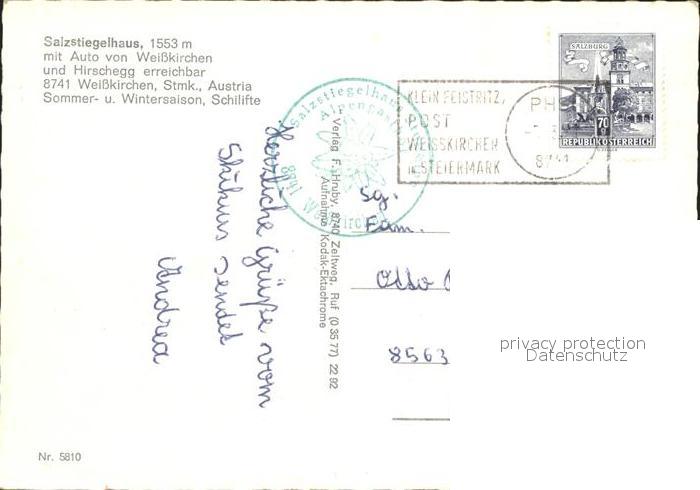 Salzstiegelhaus, 1553 m
mit Auto von Weißkirchen
und Hirschegg erreichbar
8741 Weißkirchen, Stmk., Austria
Sommer- u. Wintersaison, Schilifte
SALZBURG
70
REPUBLIK ÖSTERREICH
KLEIN FEISTRITZ,
POST
WEISSKIRCHEN
in STEIERMARK
PH
8741
Salzstiegelhaus
Alpengast
Verlag F. Hruby, 8740 Zeltweg, Ruf (0 35 77) 22 92
Aufnahme Kodak-Ektachrome
Herzliche Grüße vom
Skikurs sendet
Andrea
Sg.
Fam.
Otto
8563
privacy protection
Datenschutz
Nr. 5810